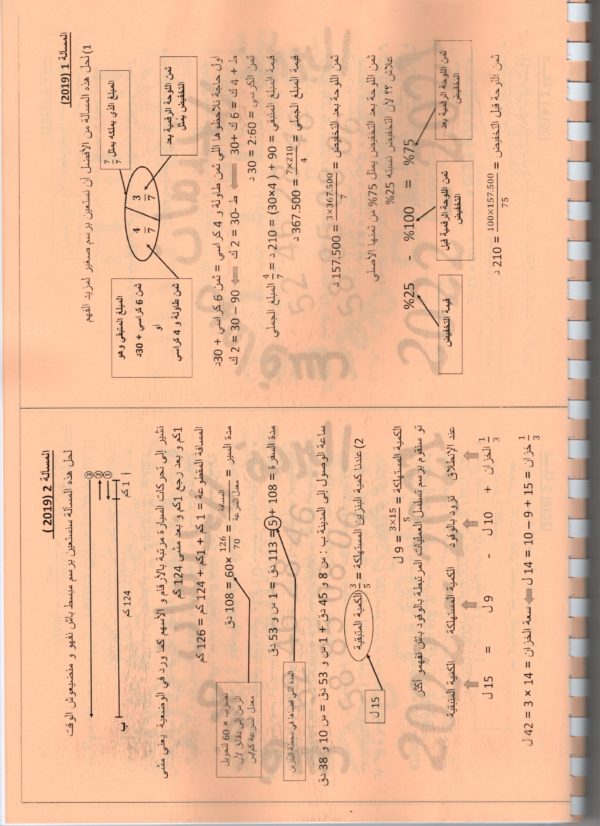 المسألة 1 (2019)
1) لحل هذه المسألة من الأفضل أن نستعين برسم صغير لمزيد الفهم
المبلغ الذي يملكه يمثل 7/7
ثمن اللوحة الرقمية بعد التخفيض يمثل
3/7
4/7
المبلغ المتبقي وهو
ثمن 6 كراسي + 30د
او
ثمن طاولة و 4 كراسي
اول حاجة نلاحظوها اللي ثمن طاولة و 4 كراسي = ثمن 6 كراسي + 30د
ط + 4 ك = 6 ك +30 ⇐ ط -30 = 2 ك ⇐ 90 – 30 = 2 ك
ثمن الكرسي = 60:2 = 30 د
قيمة المبلغ المتبقي = 90 + (4×30) = 210 د = 4/7 المبلغ الجملي
قيمة المبلغ الجملي = 7×210/4 = 367.500 د
ثمن اللوحة بعد التخفيض = 3×367.500/7 = 157.500 د
ثمن اللوحة بعد التخفيض يمثل 75% من ثمنها الأصلي
علاش ؟؟ لأن التخفيض نسبته 25%
%75 = %100 - %25
ثمن اللوحة الرقمية بعد التخفيض
ثمن اللوحة الرقمية قبل التخفيض
قيمة التخفيض
ثمن اللوحة قبل التخفيض = 100×157.500/75 = 210 د
المسألة 2 (2019)
لحل هذه المسألة سنستعين برسم مبسط باش نفهو و منضيعوش الوقت
1
2
3
أ 1 كم
124 كم
ب
نشير إلى تحركات السيارة مرتبة بالأرقام و الأسهم كما ورد في الوضعية يعني مشى
1كم و بعد رجع 1كم و بعد مشى 124 كم
المسافة المقطوعة = 1 كم + 1كم + 124 كم = 126 كم
مدة السير = المسافة/معدل السرعة = 126/70 ×60 = 108 دق
لضرب × 60 لتحويل الزمن إلى دقائق لأن معدل السرعة
مدة السفرة = 108 + 5 = 113 دق = 1 س و 53 دق
المدة التي قضتها في محطة البنزين
ساعة الوصول إلى المدينة ب : س 8 و 45 دق + 1 س و 53 دق = س 10 و 38 دق
2) عندنا كمية البنزين المستهلكة = 3/5 الكمية المتبقية
15 ل
الكمية المستهلكة = 3×15/5 = 9 ل
تو سنقوم برسم تسلسل العمليات المرتبطة بالوقود باش نفهمو أكثر
عند الإنطلاق تزود بالوقود الكمية المستهلكة الكمية المتبقية
1/3 الخزان + 10 ل - 9 ل = 15 ل
1/3 خزان = 15 + 9 – 10 = 14 ل ⇐ سعة الخزان = 14 × 3 = 42 ل